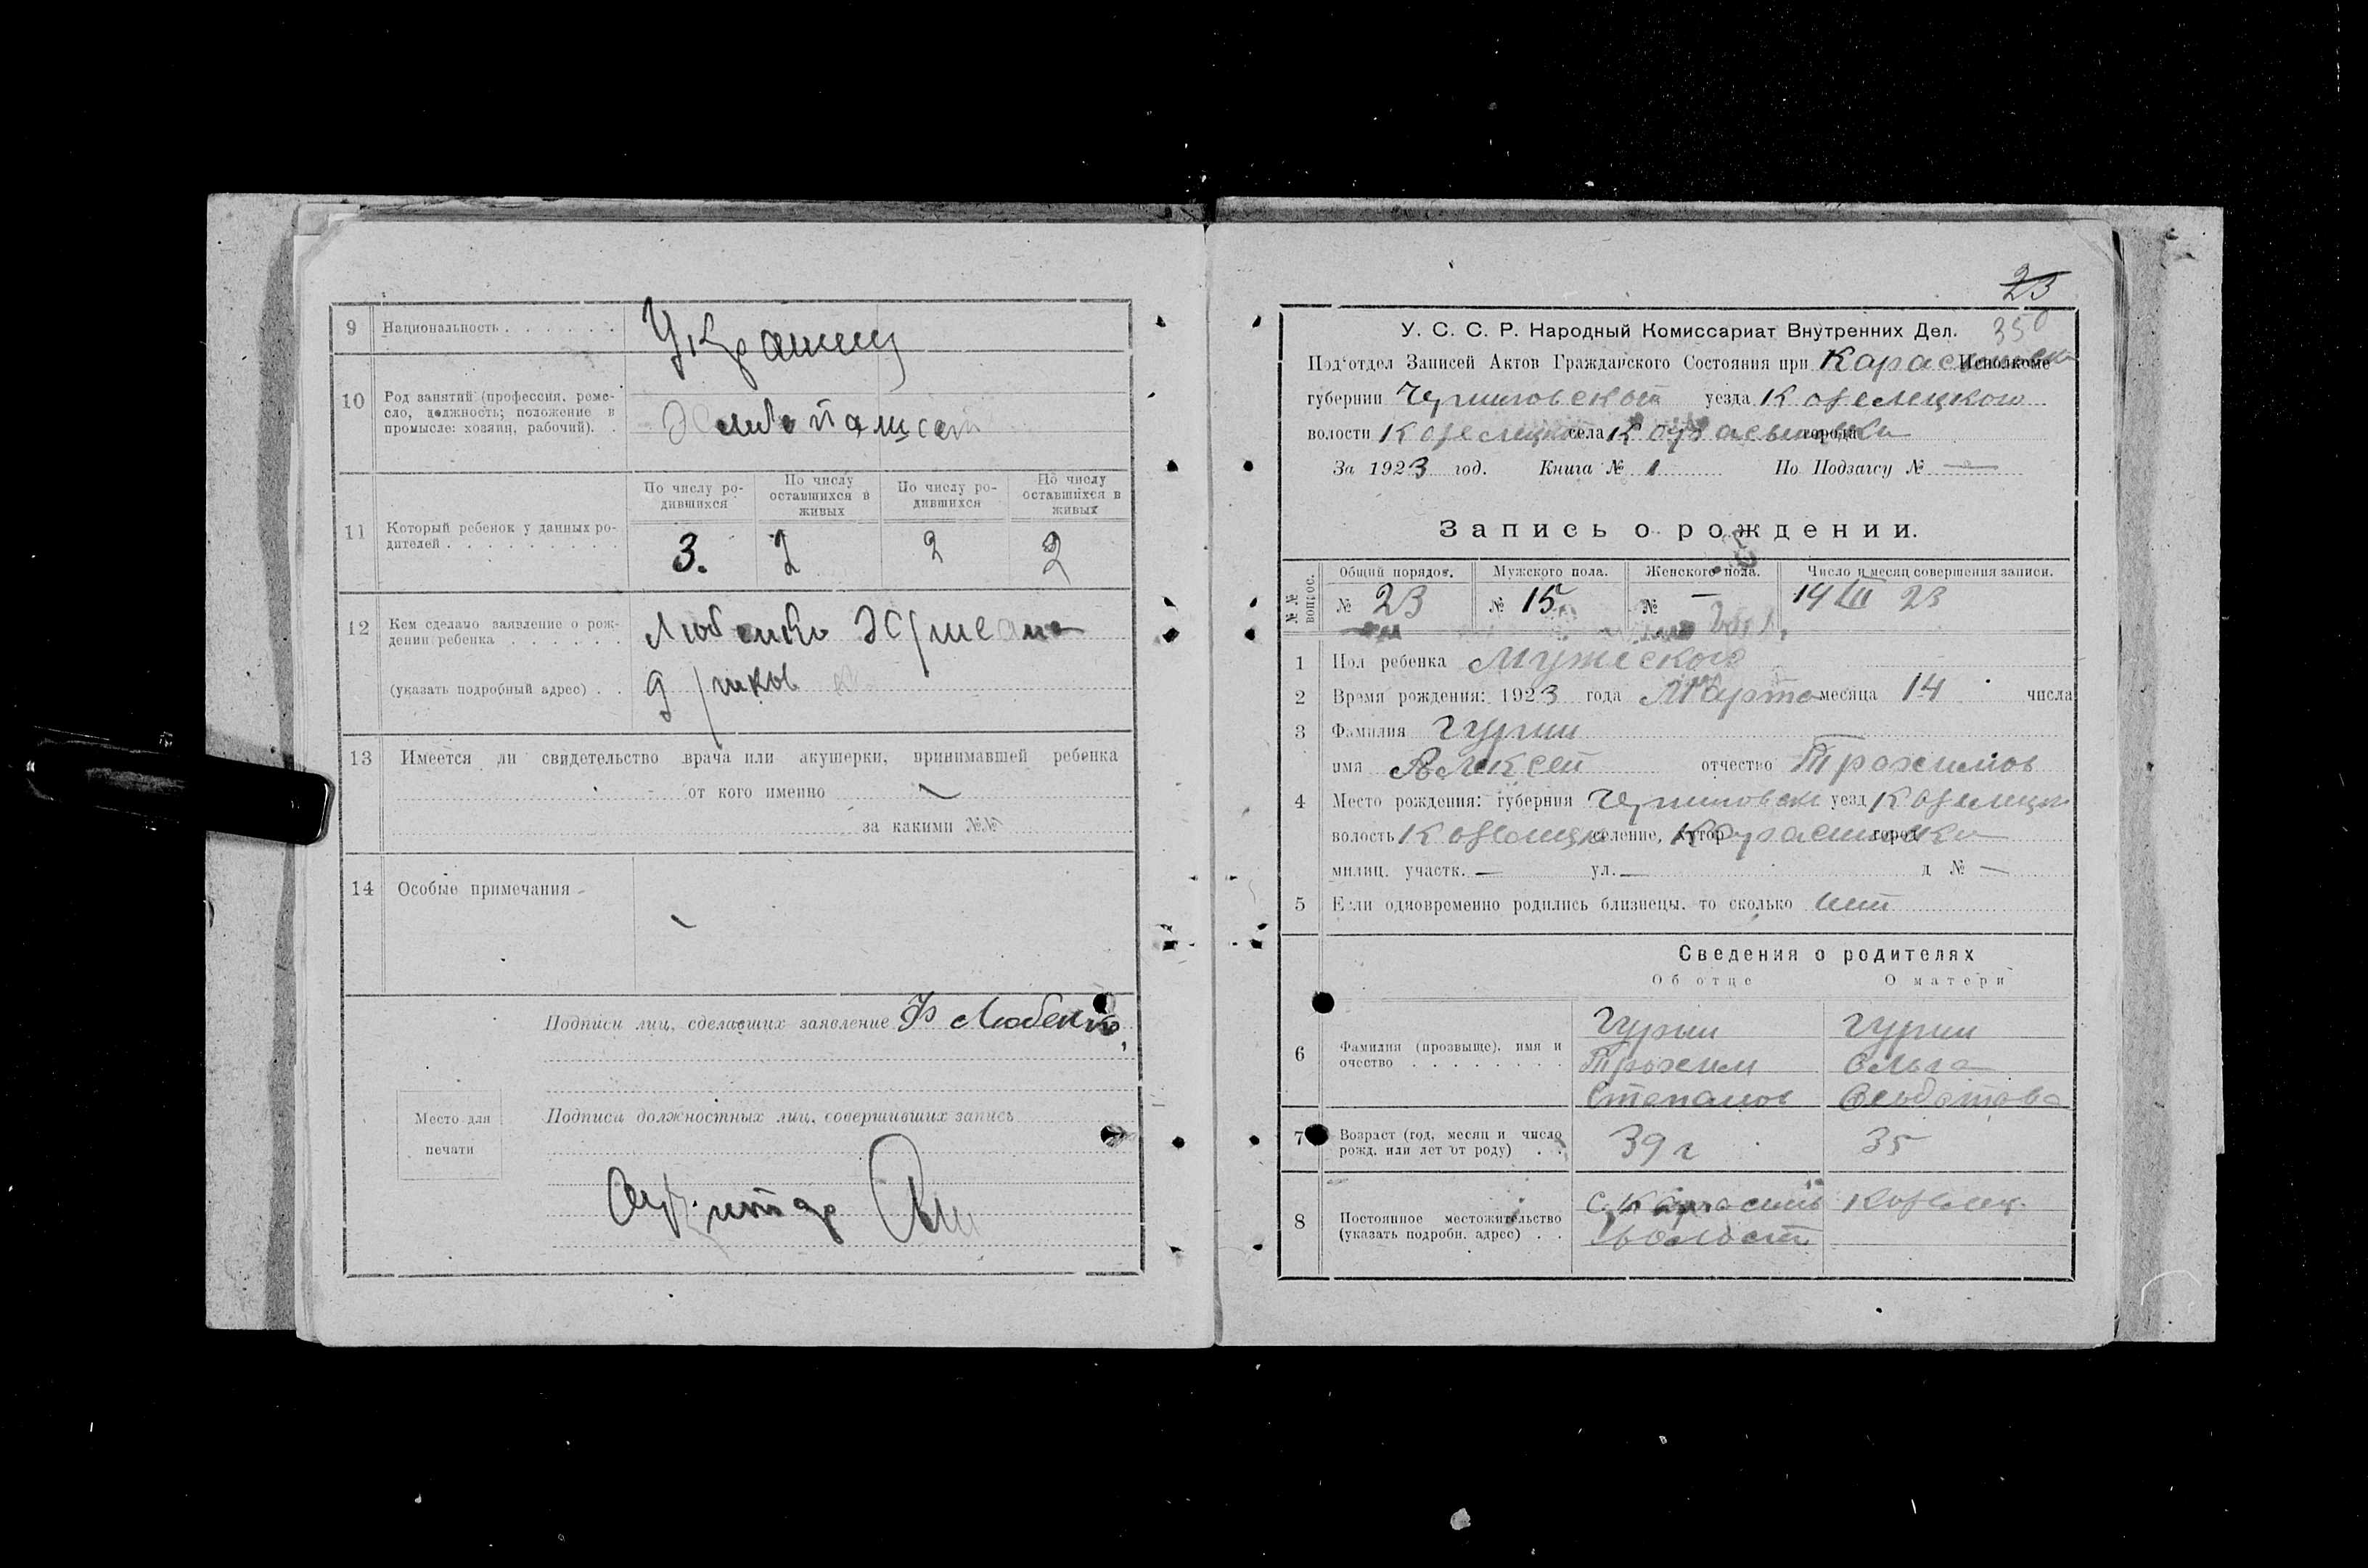 9 Национальность
Украинец
10 Род занятий (профессия, реме-
сло, должность; положение в
промысле: хозяин, рабочий).
11 Который ребенок у данных ро-
дителей
По числу ро-
дившихся
По числу
оставшихся в
живых
По числу ро-
дившихся
По числу
оставшихся в
живых
3. 2 2 2
12 Кем сделано заявление о рож-
дении ребенка
Любенко
(указать подробный адрес)
13 Имеется ли свидетельство врача или акушерки, принимавшей ребенка
от кого именно —
за какими №№
14 Особые примечания
Подписи лиц, сделавших заявление Любенко
Подписи должностных лиц, совершивших запись
Место для
печати
23
350
У. С. С. Р. Народный Комиссариат Внутренних Дел.
Под'отдел Записей Актов Гражданского Состояния при Исполкоме
губернии Черниговской уезда Козелецкого
волости Козелецкой села города
За 1923 год. Книга № 1 По Подзагсу № —
Запись о рождении.
№№ вопрос.
Общий порядов. Мужского пола. Женского пола. Число и месяц совершения записи.
№ 23 № 15 № — 14 III 23
1 Пол ребенка Мужеского
2 Время рождения: 1923 года Марта месяца 14 числа
3 Фамилия Гурин
имя Алексей отчество Трохимов
4 Место рождения: губерния Черниговск уезд Козелецк
волость Козелецк селение, хутор город
милиц. участк. — ул. — д № —
5 Если одновременно родились близнецы, то сколько нет
Сведения о родителях
Об отце О матери
6 Фамилия (прозвыще), имя и
очество
Гурин Гурин
Трохим Ольга
Степанов
7 Возраст (год, месяц и число
рожд. или лет от роду)
39 г 35
8 Постоянное местожительство
(указать подробн. адрес)
Козелец.
волости